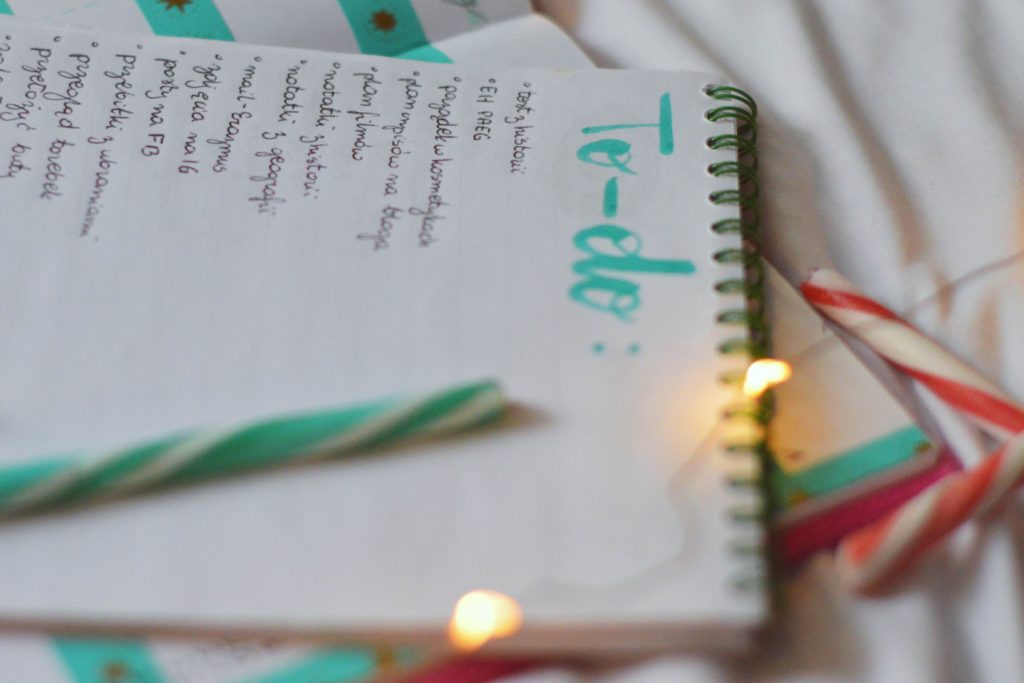 To-do:
° test z historii
° EH PAEG
° porządek w kosmetykach
° plan wpisów na bloga
° plan filmów
° notatki z historii
° notatki z geografii
° mail - Erazmus
° zdjęcia na IG
° posty na FB
° przebitki z ubraniami
° przegląd torebek
° przełożyć buty